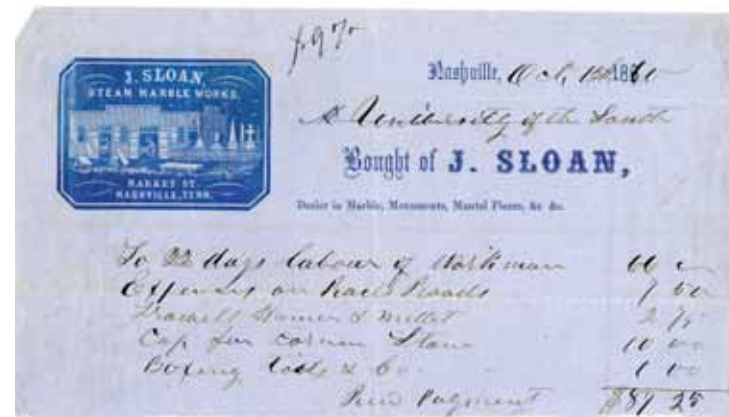 J. SLOAN,
STEAM MARBLE WORKS.
MARKET ST.
NASHVILLE, TENN.
Nashville, Oct, 1860
M University of the South
Bought of J. SLOAN,
Dealer in Marble, Monuments, Mantel Pieces, &c &c.
To 22 days labour of Workman 66
Expenses on Rail Roads 9 50
2 75
Cap for corner Stone 10 00
Boxing tools & Co. 1 00
Payment $89 25